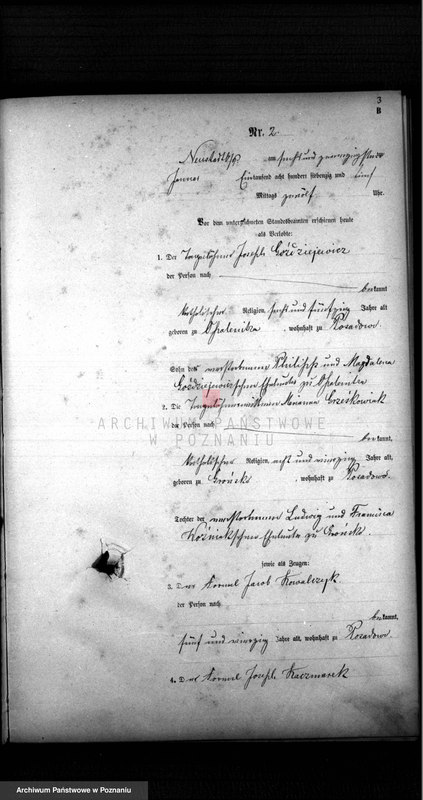 3
B
Nr. 2
Neustadt b/P am sechs und zwanzigsten
Januar Eintausend acht hundert siebenzig und fünf
Mittags zwölf Uhr.
Vor dem unterzeichneten Standesbeamten erschienen heute
als Verlobte:
1. Der Tagelöhner Joseph Góździejewicz
der Person nach
bekannt
katholischer Religion, sechs und fünfzig Jahre alt
geboren zu Opalenitza, wohnhaft zu Posadowo
Sohn des verstorbenen Philipp und Magdalena
Góździejewiczschen Eheleute zu Opalenitza
2. Die Tagelöhnerwittwe Marianna Grześkowiak
der Person nach
bekannt,
katholischer Religion, acht und vierzig Jahre alt,
geboren zu Grońsko, wohnhaft zu Posadowo
Tochter der verstorbenen Ludwig und Francisca
Woźniakschen Eheleute zu Grońsko.
sowie als Zeugen:
3. Der Kornal Jacob Kowalczyk
der Person nach
bekannt,
fünf und vierzig Jahre alt, wohnhaft zu Posadowo
4. Der Kornal Joseph Kaczmarek
ARCHIWUM PAŃSTWOWE
W POZNANIU
Archiwum Państwowe w Poznaniu